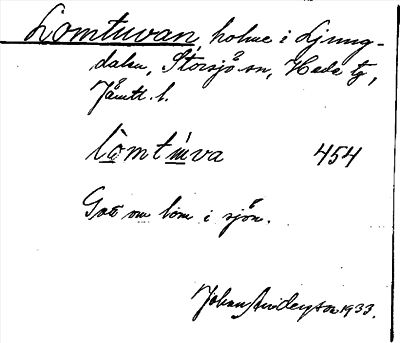 Lomtuvan, holme i Ljung-
dalen, Storsjö sn, Hede tg,
Jämtl. l.
lòmtùva 454
Gott om lom i sjön.
Johan Anderson 1933.